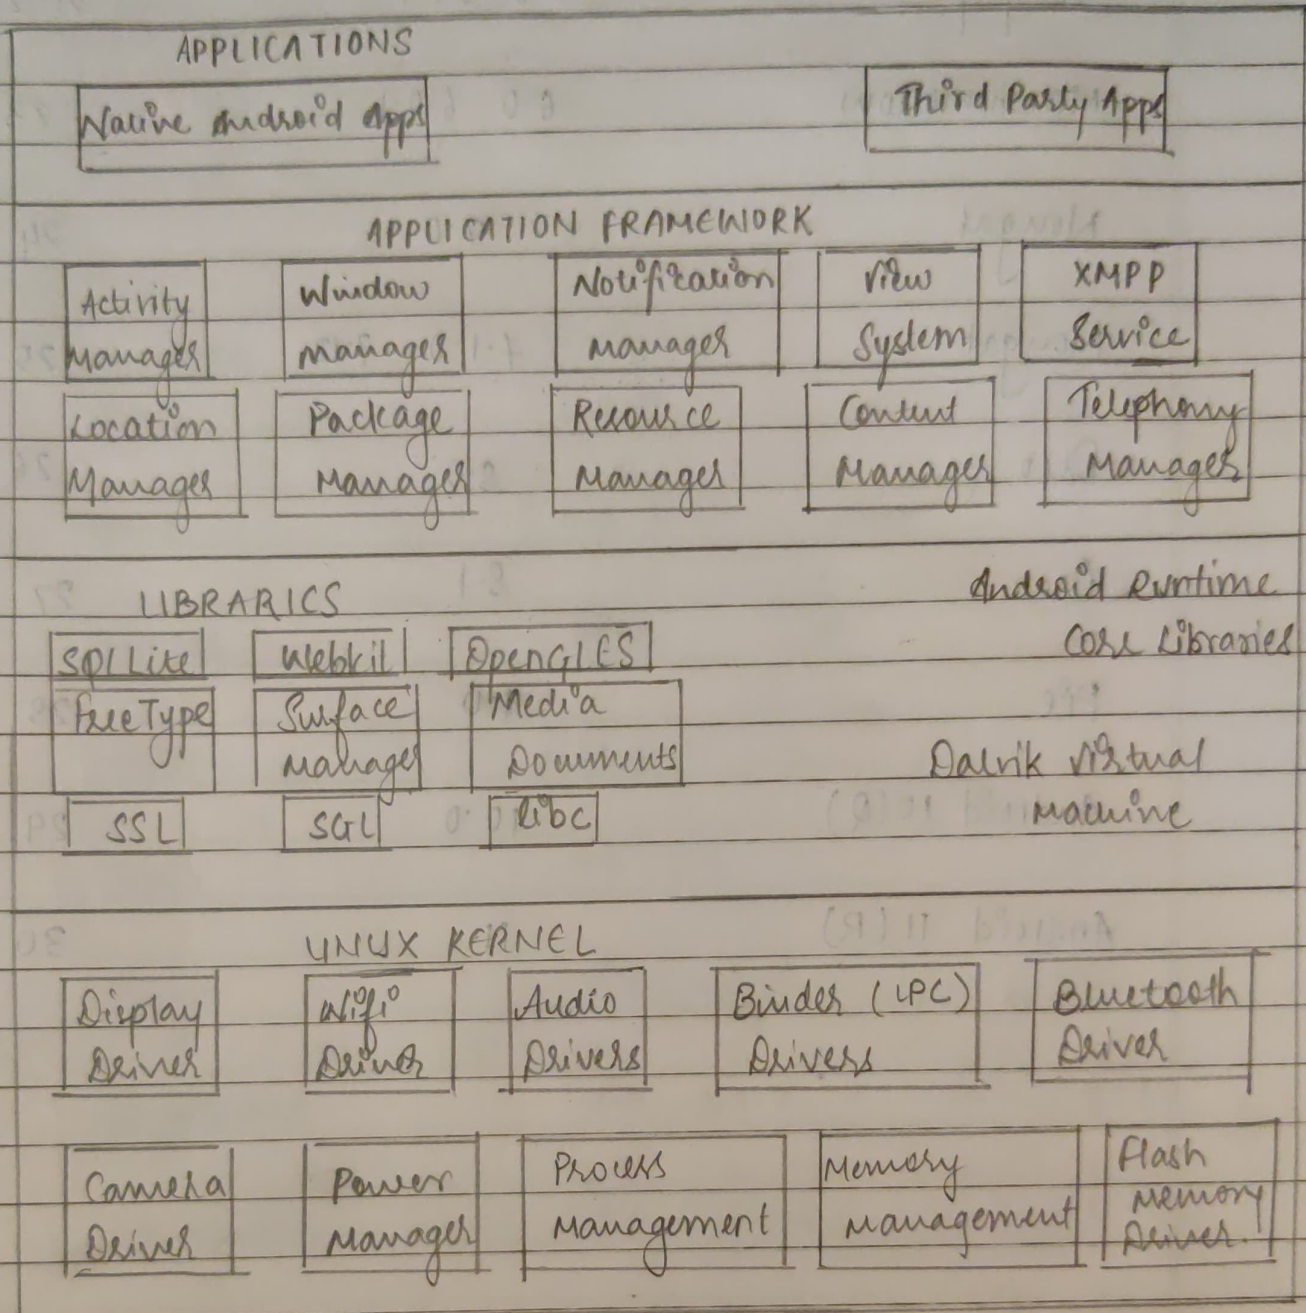 APPLICATIONS
Native Android Apps
Third Party Apps
APPLICATION FRAMEWORK
Activity Manager
Window Manager
Notification Manager
View System
XMPP Service
Location Manager
Package Manager
Resource Manager
Content Manager
Telephony Manager
LIBRARIES
Android Runtime
Core Libraries
SQLLite
Webkit
OpenGLES
FreeType
Surface Manager
Media Documents
Dalvik Virtual Machine
SSL
SGL
Libc
LINUX KERNEL
Display Driver
Wifi Driver
Audio Drivers
Binder (IPC) Drivers
Bluetooth Driver
Camera Driver
Power Manager
Process Management
Memory Management
Flash Memory Driver.